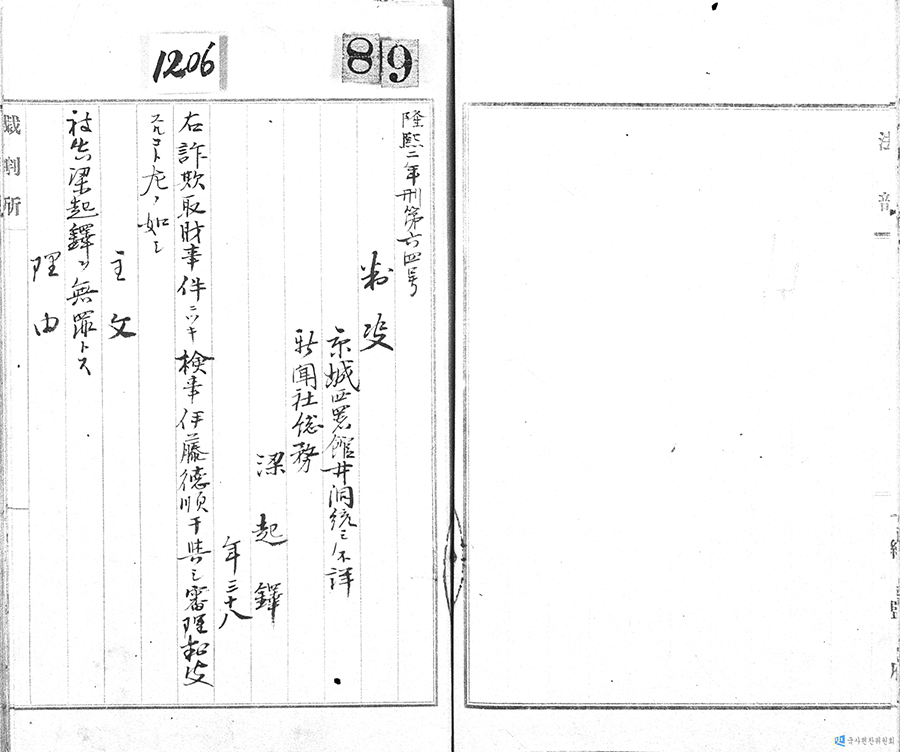 1206
89
隆熙二年刑第六四号
判決
京城西署館井洞統戸不詳
新聞社総務
梁起鐸
年三十八
右詐欺取財事件ニツキ検事伊藤徳順干與シ審理判決
スルコト左ノ如シ
主文
被告梁起鐸ヲ無罪トス
理由
裁判所
국사편찬위원회